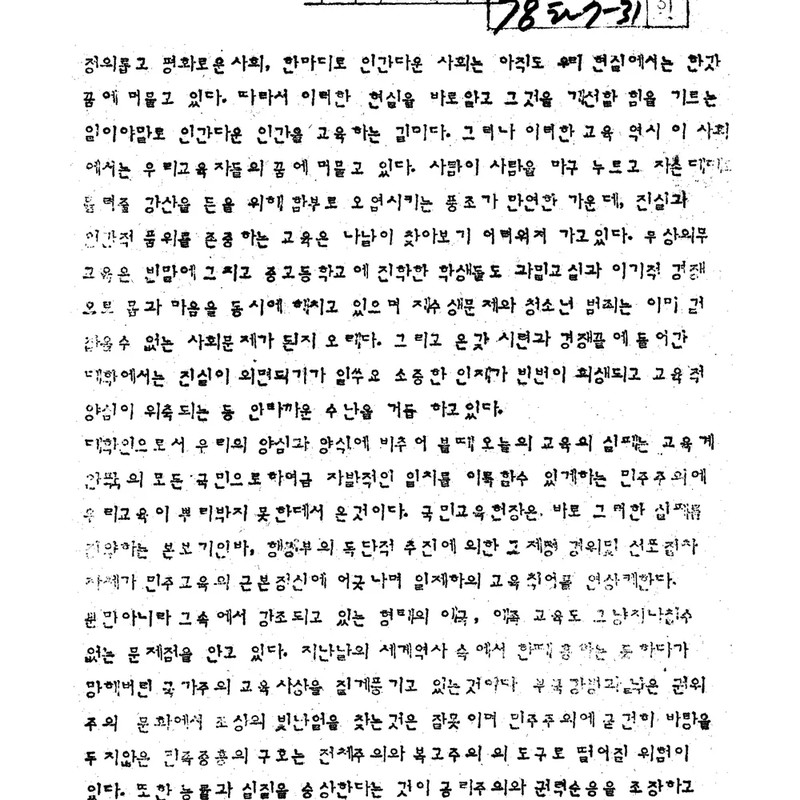 78 5-7-31 인
정의롭고 평화로운 사회, 한마디로 인간다운 사회는 아직도 우리 현실에서는 한갓
꿈에 머물고 있다. 따라서 이러한 현실을 바로알고 그것을 개선할 힘을 기르는
일이야말로 인간다운 인간을 교육하는 길이다. 그러나 이러한 교육 역시 이 사회
에서는 우리교육자들의 꿈에 머물고 있다. 사람이 사람을 마구 누르고 자손대대로
물려줄 강산을 돈을 위해 함부로 오염시키는 풍조가 만연한 가운데, 진실과
인간적 품위를 존중하는 교육은 나날이 찾아보기 어려워져 가고있다. 무상의무
교육은 빈말에 그치고 중고등학교에 진학한 학생들도 과밀교실과 이기적 경쟁
으로 몸과 마음을 동시에 해치고 있으며 재수생문제와 청소년 범죄는 이미 걷
잡을수 없는 사회문제가 된지 오래다. 그리고 온갖 시련과 경쟁끝에 들어간
대학에서는 진실이 외면되기가 일쑤요 소중한 인재가 빈번이 희생되고 교육적
양심이 위축되는 등 안타까운 수난을 거듭 하고있다.
대학인으로서 우리의 양심과 양식에 비추어 볼때 오늘의 교육의 실패는 교육계
안팎의 모든 국민으로하여금 자발적인 일치를 이룩할수 있게하는 민주주의에
우리교육이 뿌리박지 못한데서 온것이다. 국민교육헌장은 바로 그러한 실패를
집약하는 본보기인바, 행정부의 독단적 추진에 의한 그 제정 경위및 선포절차
자체가 민주교육의 근본정신에 어긋나며 일제하의 교육칙어를 연상케한다.
뿐만아니라 그속에서 강조되고 있는 형태의 애국, 애족 교육도 그냥지나칠수
없는 문제점을 안고 있다. 지난날의 세계역사 속에서 한때 흥하는 듯 하다가
망해버린 국가주의 교육사상을 짙게풍기고 있는것이다 부국강병과 낡은 권위
주의 문화에서 조상의 빛난얼을 찾는것은 잘못이며 민주주의에 굳건히 바탕을
두지않은 민족중흥의 구호는 전체주의와 복고주의의 도구로 떨어질 위험이
있다. 또한 능률과 실질을 숭상한다는 것이 공리주의와 권력순응을 조장하고